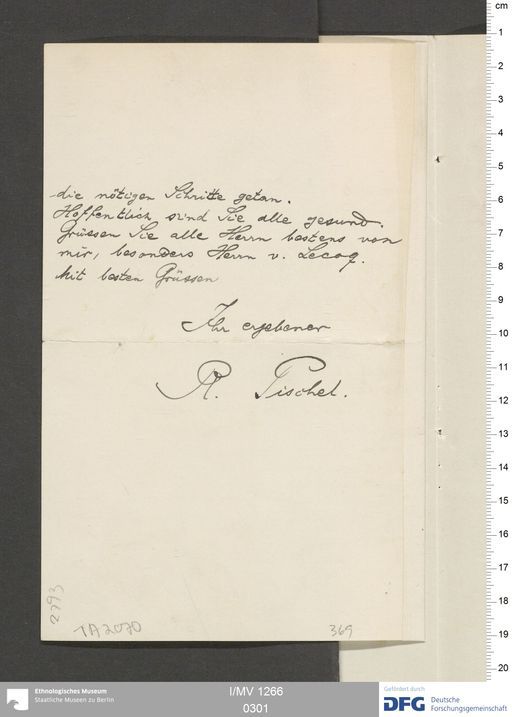 die nötigen Schritte getan.
Hoffentlich sind Sie alle gesund.
Grüssen Sie alle Herrn bestens von
mir, besonders Herrn v. Lecoq.
Mit besten Grüssen
Ihr ergebener
R. Pischel.
2793
TA 2070
369
cm
1
2
3
4
5
6
7
8
9
10
11
12
13
14
15
16
17
18
19
20
Ethnologisches Museum
Staatliche Museen zu Berlin
I/MV 1266
0301
Gefördert durch
DFG Deutsche
Forschungsgemeinschaft